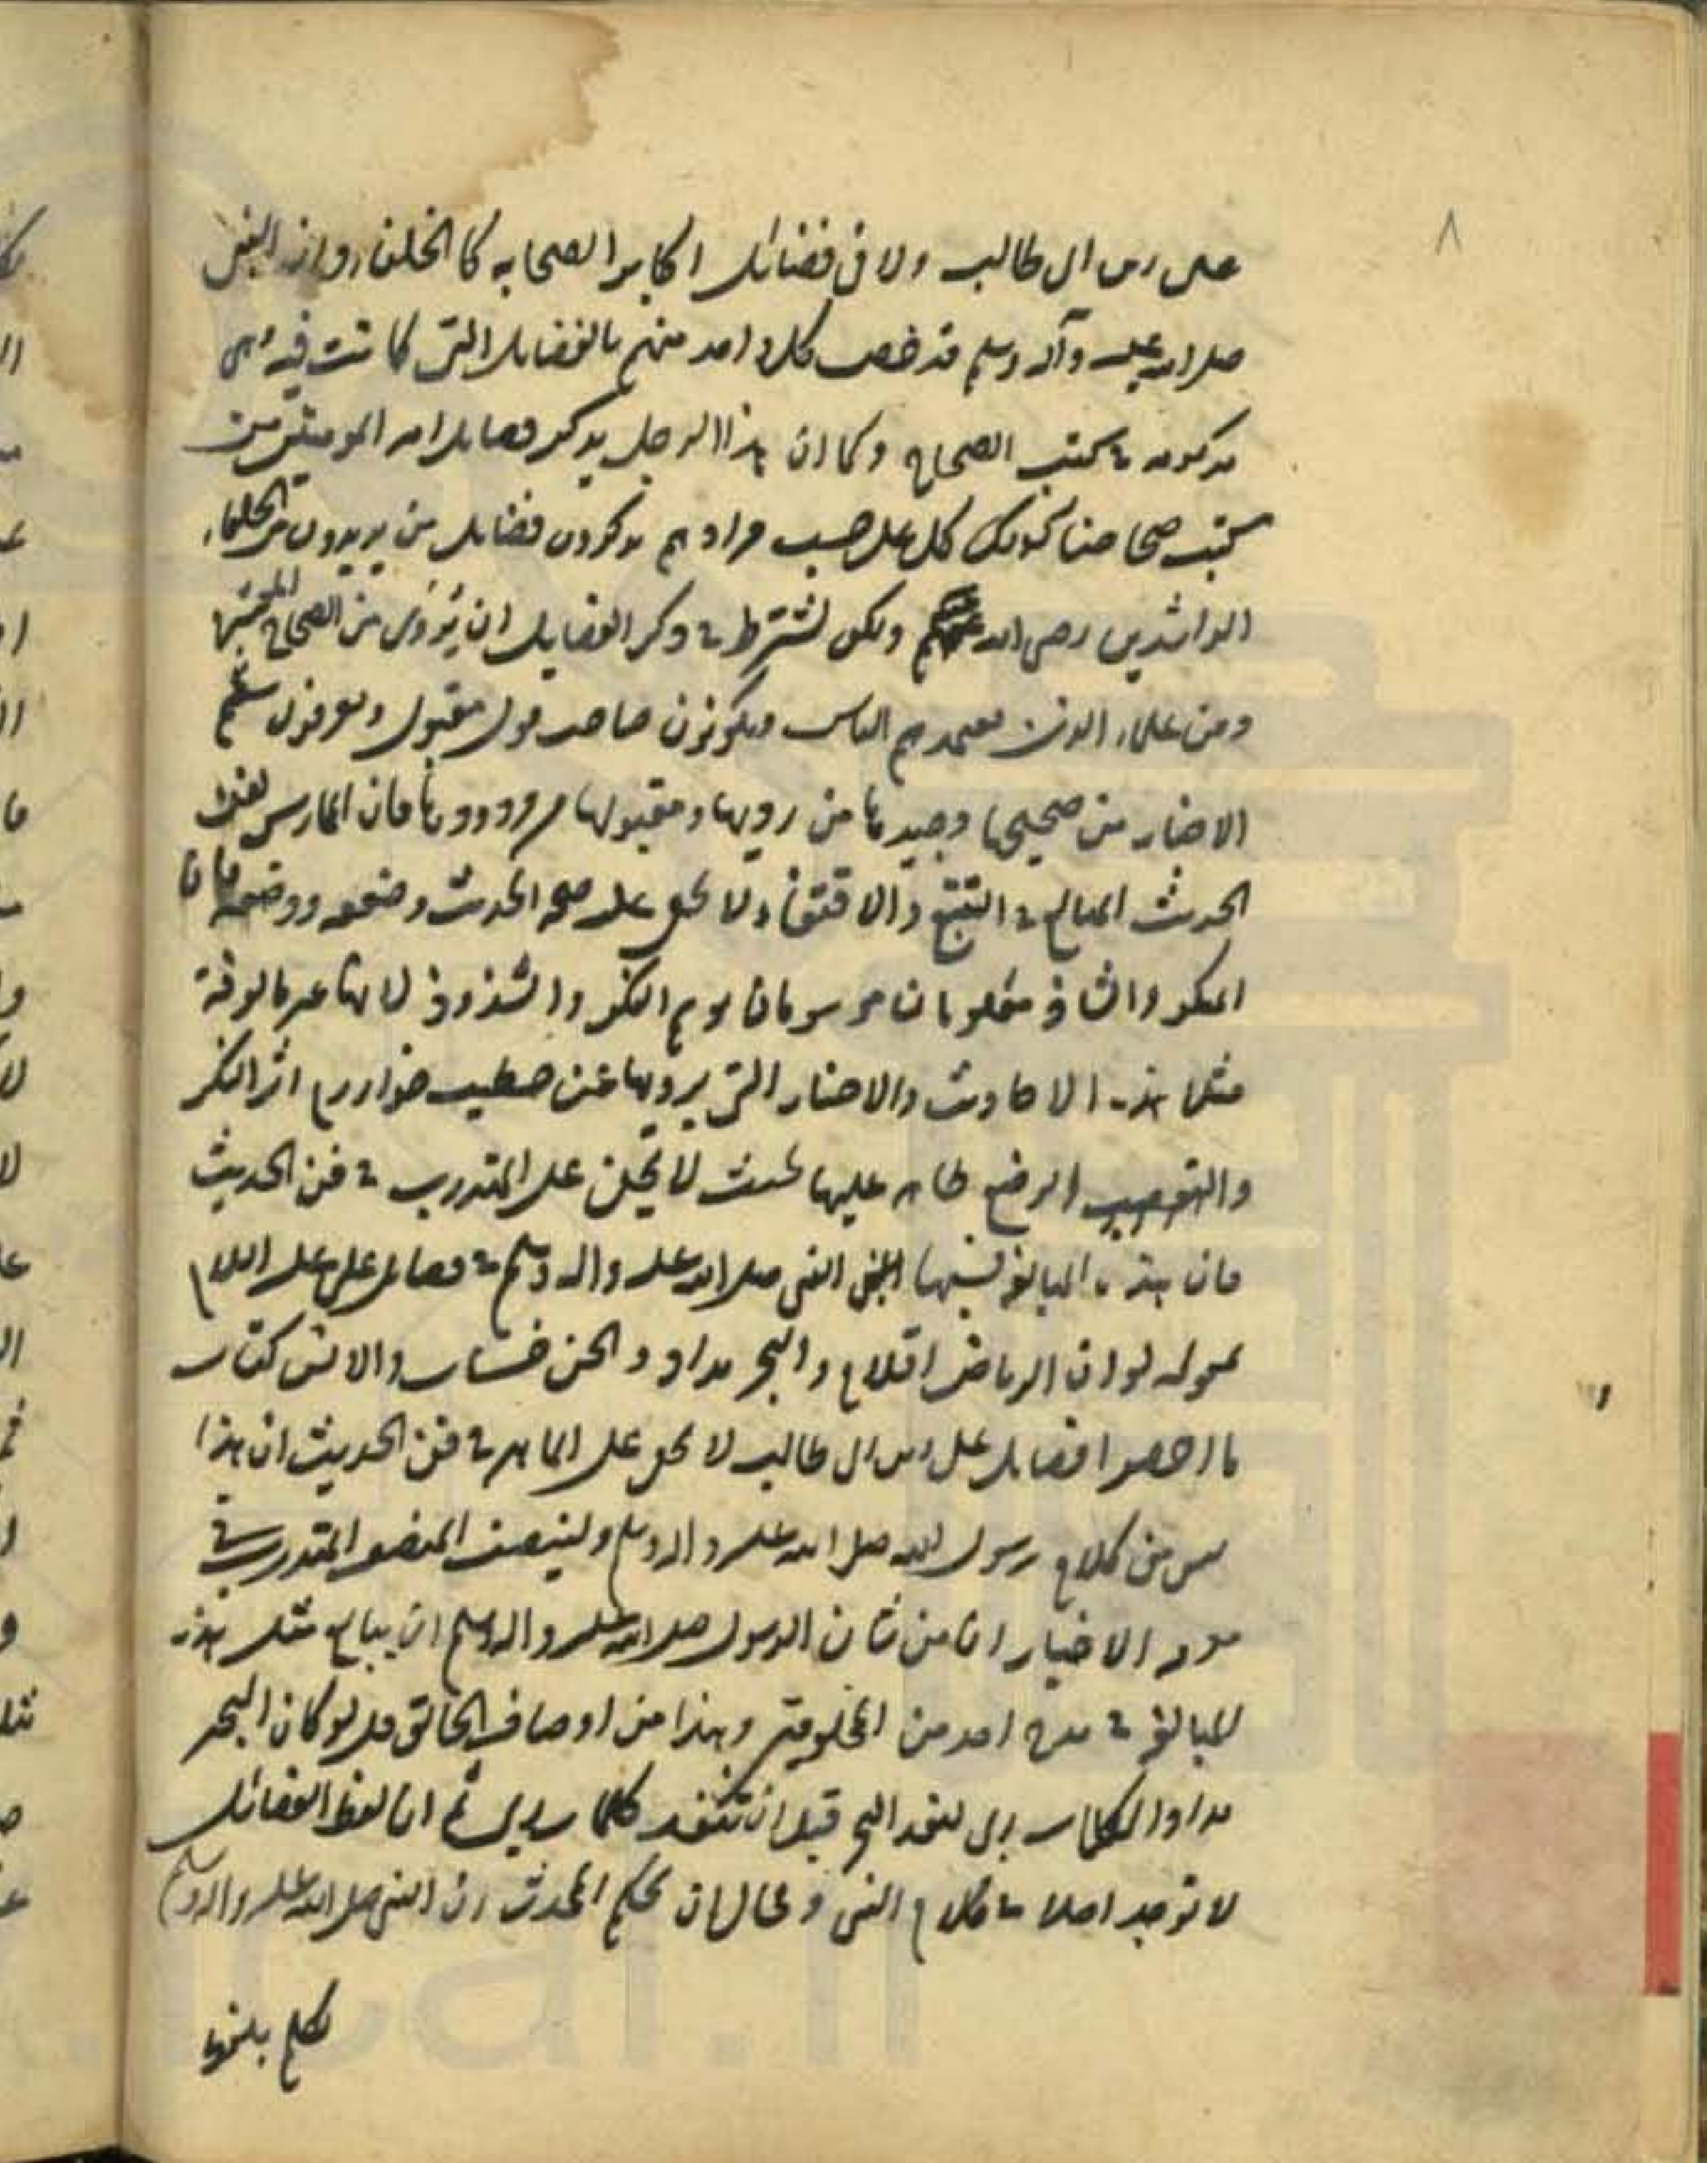 ٨
على بن ابى طالب ولا فى فضائل اكابر الصحابه كالخلفاء وان النبى
صلى الله عليه وآله وسلم قد خص كل واحد منهم بالفضايل التى كانت فيه وهى
مذكورة فى كتب الصحاح وكما ان هذا الرجل يذكر فضايل امير المومنين من
كتب صحاحنا كذلك كل على حسب مرادهم يذكرون فضايل من يريدون من الخلفاء
الراشدين رضى الله عنهم ولكن يشترط فى ذكر الفضايل ان يروى من الصحاح المعتبرة
ومن علماء الذين يعتمدهم الناس ويكونون صاحب قول مقبول ويعرفون سقيم
الاخبار من صحيحها وجيدها من رديها ومقبولها مردودها فان الممارس لفن
الحديث المبالغ فى التتبع والاقتفاء لا يخفى على صحة الحديث وضعفه ووضعه فان
المنكر والشاذ معلومان موسومان بوسم النكر والشذوذ لانها غير مالوفة
مثل هذه الاحاديث والاخبار التى يرويها عن خطيب خوارزم اثر النكر
والتعصب الوضع ظاهر عليها بحيث لا يخفى على المتدرب فى فن الحديث
فان هذه المبالغة نسبها النبى صلى الله عليه واله وسلم فى فضايل على عليه السلام
بقوله لو ان الرياض اقلام والبحر مداد والجن حساب والانس كتاب
ما احصوا فضايل على بن ابى طالب لا يخفى على الماهر فى فن الحديث ان هذا
ليس من كلام رسول الله صلى الله عليه واله وسلم ولينصف المنصف المتدرب فى
معرفة الاخبار ان من شان الرسول صلى الله عليه واله وسلم ان يبالغ مثل هذه
المبالغة فى مدح احد من المخلوقين وهذا من اوصاف الخالق قل لو كان البحر
مدادا لكلمات ربى لنفد البحر قبل ان تنفد كلمات ربى ثم ان لفظ الفضائل
لا توجد اصلا فى كلام النبى ومحال ان يحكم المحدث ان النبى صلى الله عليه واله وسلم
تكلم بلفظ